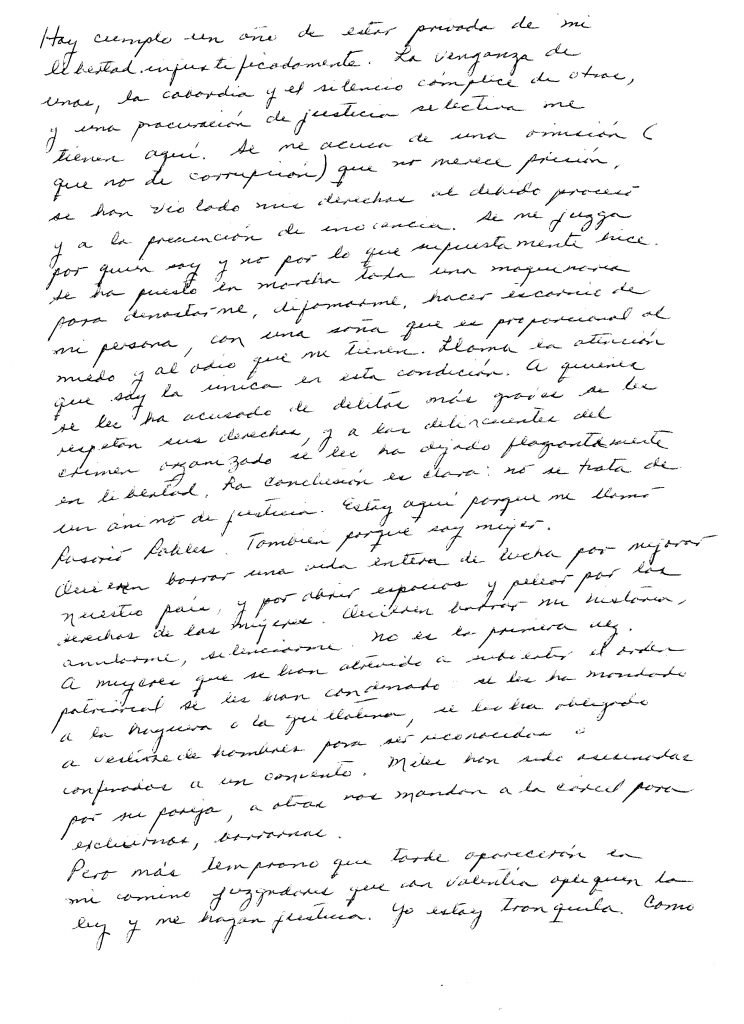 Hoy cumplo un año de estar privada de mi
libertad injustificadamente. La venganza de
unos, la cobardía y el silencio cómplice de otros,
y una procuración de justicia selectiva me
tienen aquí. Se me acusa de una omisión (
que no de corrupción) que no merece prisión,
se han violado mis derechos al debido proceso
y a la presunción de inocencia. Se me juzga
por quien soy y no por lo que supuestamente hice.
Se ha puesto en marcha toda una maquinaria
para denostarme, difamarme, hacer escarnio de
mi persona, con una saña que es proporcional al
miedo y al odio que me tienen. Llama la atención
que soy la única en esta condición. A quienes
se les ha acusado de delitos más graves se les
respetan sus derechos, y a los delincuentes del
crimen organizado se les ha dejado flagrantemente
en libertad. La conclusión es clara: no se trata de
un ánimo de justicia. Estoy aquí porque me llamo
Rosario Robles. También porque soy mujer.
Quieren borrar una vida entera de lucha por mejorar
nuestro país, y por abrir espacios y pelear por los
derechos de las mujeres. Quieren borrar mi historia,
anularme, silenciarme. No es la primera vez.
A mujeres que se han atrevido a subvertir el orden
patriarcal se les han condenado: se les ha mandado
a la hoguera o la guillotina, se les ha obligado
a vestirse de hombres para ser reconocidas o
confinadas a un convento. Miles han sido asesinadas
por su pareja, a otras nos mandan a la cárcel para
excluirnos, borrarnos.
Pero más temprano que tarde aparecerán en
mi camino juzgadores que con valentía apliquen la
ley y me hagan justicia. Yo estoy tranquila. Como